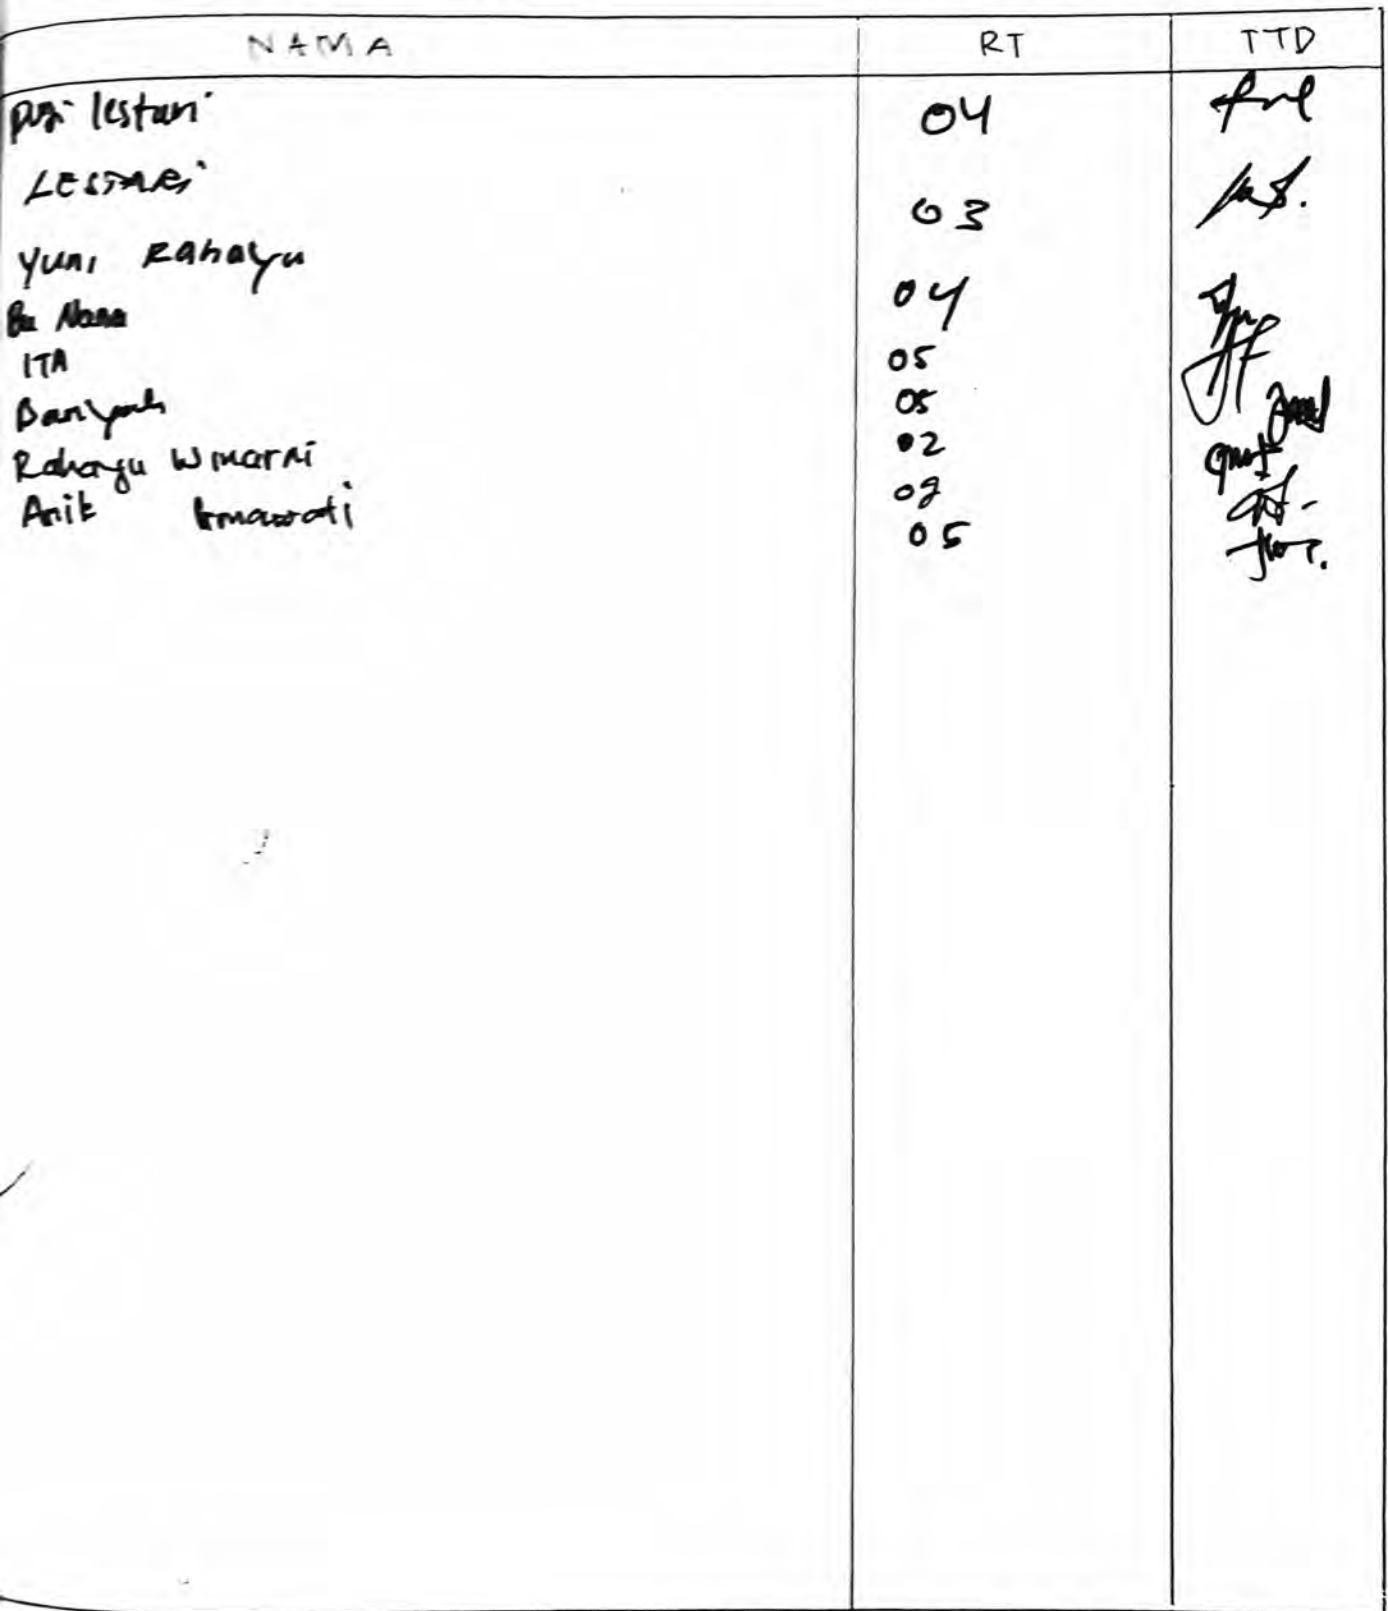 NAMA RT TTD
Puji lestari 04
LESTARi 03
Yuni Rahayu 04
Bu Nana 05
ITA 05
Baniyah 02
Rahayu Winarni 02
Anik 05